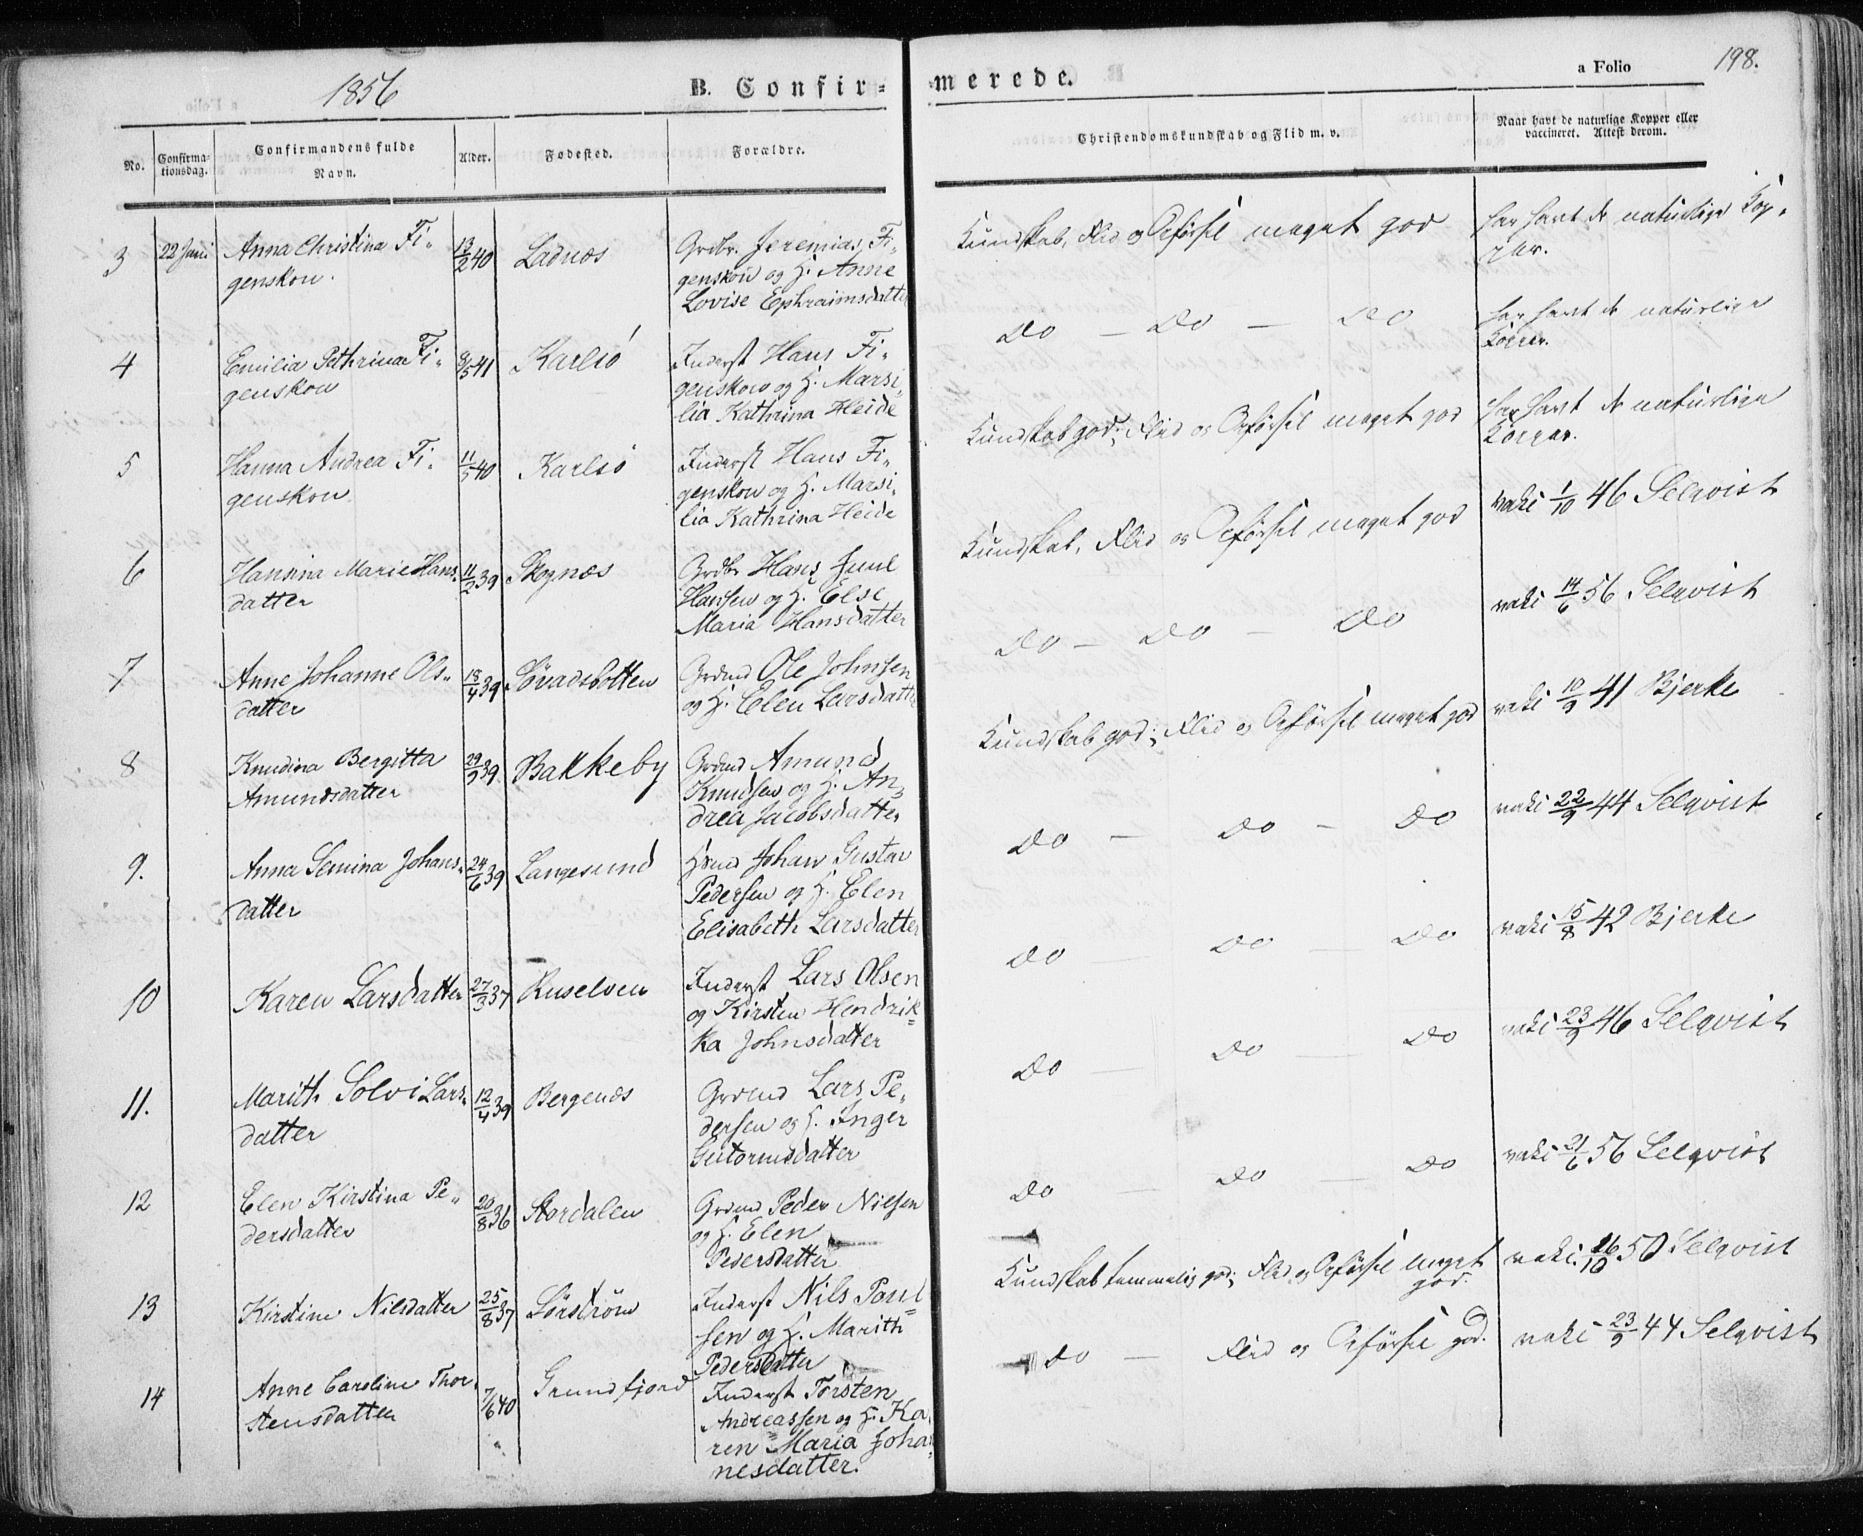 1856
B. Confir=
merede.
a Folio
198.
No.
Confirma-
tionsdag.
Confirmandens fulde
Navn.
Alder.
Fødested.
Forældre.
Christendomskundskab og Flid m. v.
Naar havt de naturlige Kopper eller
vaccineret. Attest derom.
3
22 Juni
Anna Christina Fi-
genskou.
13/2 40
Ladnæs
Grdbr. Jeremias Fi-
genskou og H. Anne
Lovise Ephraimsdatter
Kundskab, Flid og Opførsel meget god
har havt de naturlige Kop-
per.
4
Emilia Cathrina Fi-
genskou
8/5 41
Karlsö
Inderst Hans Fi-
genskou og H. Marsi-
lia Kathrina Heide
Do — Do — Do
har havt de naturlige
Kopper.
5
Hanna Andrea Fi-
genskou
11/5 40
Karlsö
Inderst Hans Fi-
genskou og H. Marsi-
lia Kathrina Heide
Kundskab god; Flid og Opførsel meget god
har havt de naturlige
Kopper.
6
Hannina Marie Hans-
datter
11/2 39
Skognæs
Grdbr Hans Juul
Hansen og H. Else
Maria Hansdatter
Kundskab, Flid og Opførsel meget god
vaki 1/10 46 Selqvist
7
Anne Johanne Ols-
datter
18/4 39
Sövadsbotten
Grdmd Ole Johnsen
og H. Elen Larsdatter
Do — Do — Do
vaki 14/6 56 Selqvist
8
Knudina Bergitta
Amundsdatter
29/9 39
Bakkeby
Grdmd Amund
Knudsen og H. An-
drea Jacobsdatter
Kundskab god; Flid og Opførsel meget god
vaki 10/9 41 Bjerke
9.
Anna Semina Johans-
datter
24/6 39
Langesund
Hsmd Johan Gustav
Pedersen og H. Elen
Elisabeth Larsdatter
Do — Do — Do
vaki 22/9 44 Selqvist
10
Karen Larsdatter
27/3 37
Ruselven
Inderst Lars Olsen
og Kirsten Hendrik=
ka Johnsdatter
Do — Do — Do
vaki 15/8 42 Bjerke
11.
Marith Solvi Lars-
datter
12/4 39
Bergenæs
Grdmd Lars Pe-
dersen og H. Inger
Gutormsdatter
Do — Do — Do
vaki 23/9 46 Selqvist
12
Elen Kirstina Pe-
dersdatter
20/8 36
Stordalen
Grdmd Peder Nilsen
og H. Elen
Pedersdatter
Do — Do — Do
vaki 21/6 56 Selqvist
13
Kirstine Nilsdatter
25/8 37
Sörström
Inderst Nils Poul=
sen og H. Marith
Pedersdatter
Kundskab temmelig god; Flid og Opførsel meget
god.
vaki 16/10 50 Selqvist
14
Anne Caroline Thor-
stensdatter
7/6 40
Grundfjord
Inderst Torsten
Andreassen og H. Ka-
ren Maria Joha-
nesdatter.
Do — Flid og Opførsel god.
vaki 23/9 44 Selqvist